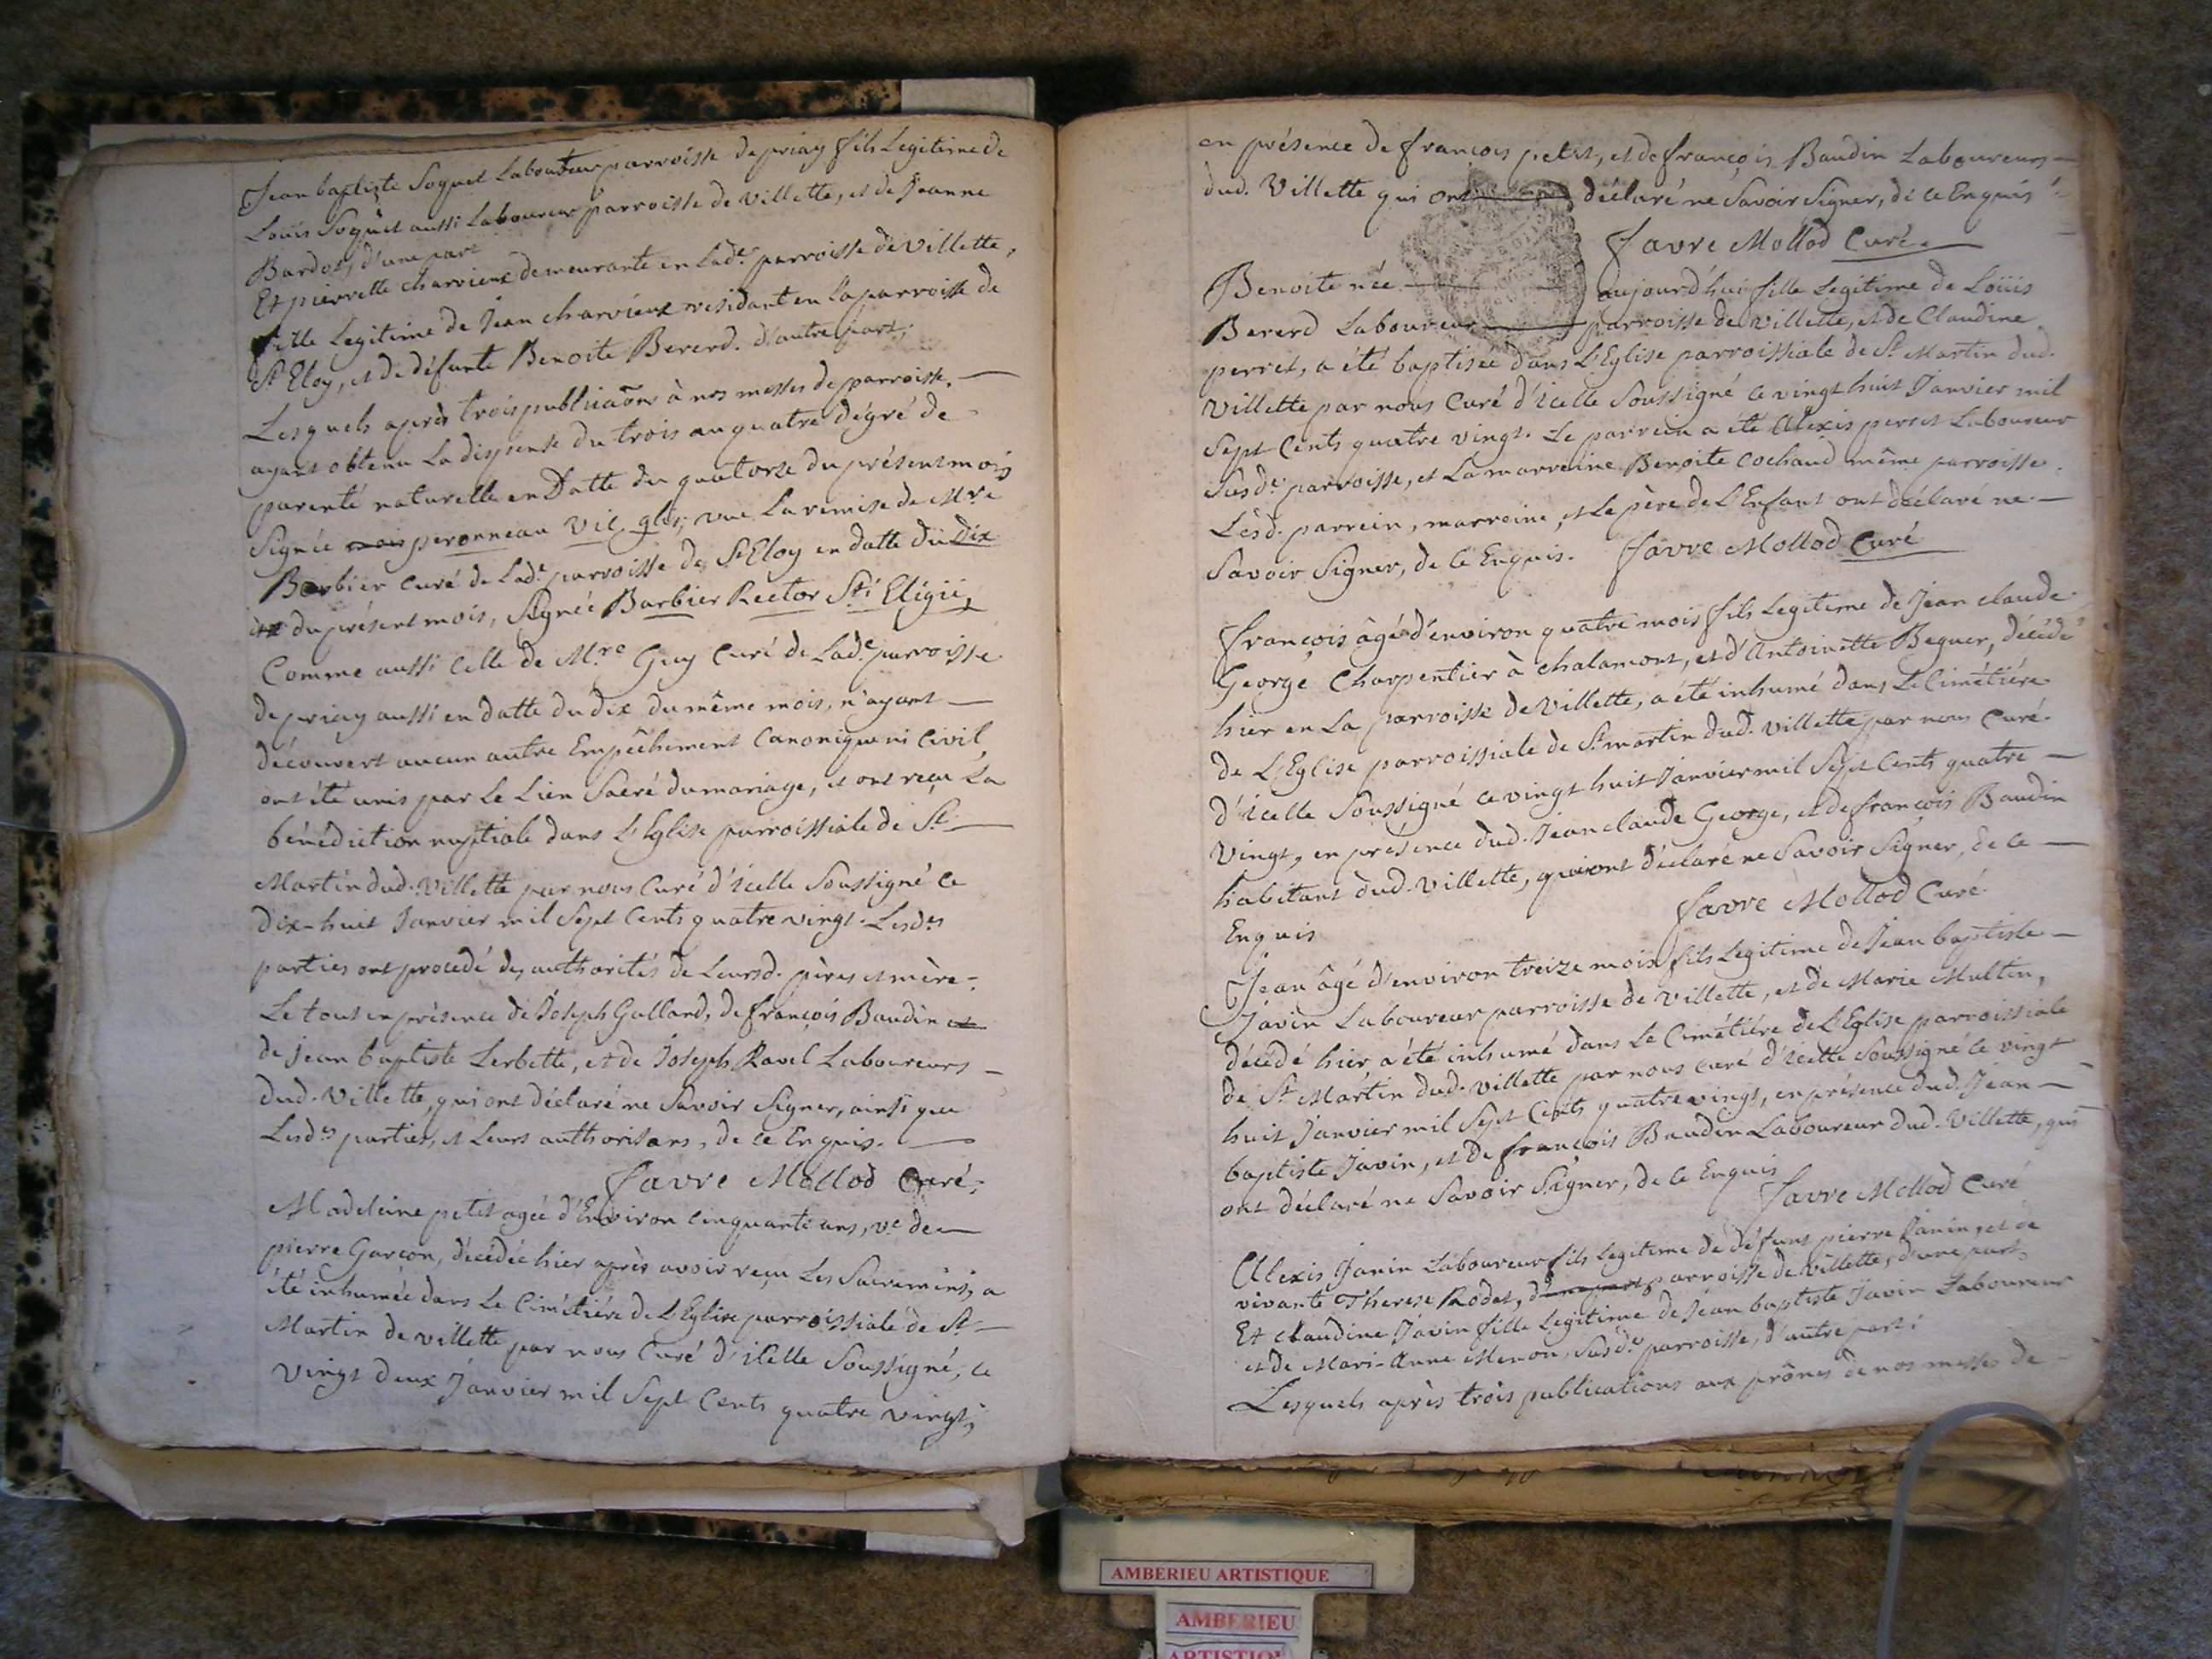 Jean baptiste Soquet Laboureur parroisse de priay fils Legitime de
Louis Soquet aussi Laboureur parroisse de villette, et de Jeanne
Bardot, d'une part
Et pierrette charvieux demeurante en Lad.e parroisse de villette,
fille Legitime de Jean charvieux residant en la parroisse de
St Eloy, et de défunte Benoite Bererd. d'autre part;
Lesquels après trois publicaõns à nos messes de parroisse,
ayant obtenu La dispense du trois au quatre dégré de
parenté naturelle en Datte du quatorze du présent mois
Signée peronneau vic. gl; vue La remise de Mre
Barbier curé de Lade parroisse de St Eloy en datte du Dix
du présent mois, Signée Barbier Rector Sti Eligii,
Comme aussi celle de Mre Guy Curé de Lade parroisse
de priay aussi en datte du dix du même mois, n'ayant
découvert aucun autre Empêchement Canonique ni Civil,
ont été unis par Le Lien Sacré du mariage, et ont reçu La
bénédiction nuptiale dans L'Eglise parroissiale de St
Martin dud. villette par nous Curé d'icelle Soussigné ce
dix-huit Janvier mil Sept Cents quatre vingt. Lesdes
parties ont procedé des authorités de Leursd. pères et mère.
Le tout en présence de Joseph Galland, de françois Baudin et
de jean baptiste Lerbette, et de Joseph Ravel Laboureurs
dud. Villette, qui ont déclaré ne Savoir Signer, ainsi que
Lesdes parties, et Leurs authorisans, de ce Enquis.
favre Mollod Curé.
Madeleine petit agée d'Environ cinquante ans, ve de
pierre Garcon, décédée hier après avoir reçu Les Sacremens, a
été inhumée dans Le Cimétiére de L'Eglise parroissiale de St
Martin de villette par nous Curé d'icelle Soussigné, ce
vingt deux Janvier mil Sept Cents quatre vingt,
en présence de françois petit, et de françois Baudin Laboureurs
dud. Villette qui ont déclaré ne Savoir Signer, de ce Enquis
favre Mollod Curé.
Benoite née aujourd'hui fille Legitime de Loüis
Bererd Laboureur parroisse de villette, et de Claudine
perret, a été baptisée dans L'Eglise parroissiale de St Martin dud.
villette par nous Curé d'icelle Soussigné ce vingt huit Janvier mil
Sept Cents quatre vingt. Le parrein a été Alexis perret Laboureur
Susde parroisse, et La marreine Benoite Cochand même parroisse.
Lesd. parrein, marreine, et Le père de L'Enfant ont déclaré ne
Savoir Signer, de ce Enquis. favre Mollod Curé
françois âgé d'environ quatre mois fils Legitime de Jean claude
George Charpentier à chalamont, et d'Antoinette Beguer, décédé
hier en La parroisse de villette, a été inhumé dans Le Cimétiére
de L'Eglise parroissiale de St martin dud. villette par nous Curé
d'icelle Soussigné ce vingt huit Janvier mil Sept Cents quatre
vingt, en présence dud. Jean claude George, et de françois Baudin
habitant dud. villette, qui ont déclaré ne Savoir Signer, de ce
Enquis
favre Mollod Curé
Jean âgé d'environ treize mois fils Legitime de Jean baptiste
Javin Laboureur parroisse de villette, et de Marie Multin,
décédé hier, a été inhumé dans Le Cimétiére de L'Eglise parroissiale
de St Martin dud. villette par nous curé d'icelle Soussigné ce vingt
huit Janvier mil Sept Cents quatre vingt, en présence dud. Jean
baptiste Javin, et de françois Baudin Laboureur dud. villette, qui
ont déclaré ne Savoir Signer, de ce Enquis
favre Mollod Curé
Alexis Janin Laboureur fils Legitime de défunt pierre Janin, et de
vivante Therese Rodet, d'une part parroisse de villette, d'une part,
Et claudine Javin fille Legitime de Jean baptiste Javin Laboureur
et de Mari-Anne Menon, Susde parroisse, d'autre part;
Lesquels après trois publications aux prônes de nos messes de
AMBERIEU ARTISTIQUE
AMBERIEU
ARTISTIQUE